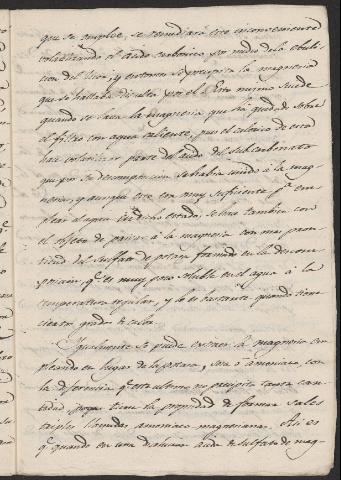 que se emplee, se remediará este inconveniente
volatilizando el ácido carbónico por medio de la ebuli-
cion del licor, y entonces se precipita la magnesia
que se hallaba disuelta por el. Esto mismo sucede
quando se lava la magnesia que ha quedado sobre
el filtro con agua caliente, pues el calorico de esta
hace volatilizar parte del acido del subcarbonato
que por su descomposicion se habia unido á la mag-
nesia, y aunque esto es muy suficiente pa. em-
plear al agua en dicho estado, se hace tambien con
el objeto de privar á la magnesia con mas pron-
titud del sulfato de potasa formado en la descom-
posicion, qe. es muy poco soluble en el agua á la
temperatura regular, y lo es bastante quando tiene
cierto grado de calor.
Igualmente se puede extraer la magnesia em-
pleando en lugar de la potasa, sosa ó amoniaco, con
la diferencia qe. este ultimo no precipita tanta can-
tidad porque tiene la propiedad de formar sales
triples llamadas amoniaco magnesianas. Asi es
qe. quando en una disolucion acida de sulfato de mag-